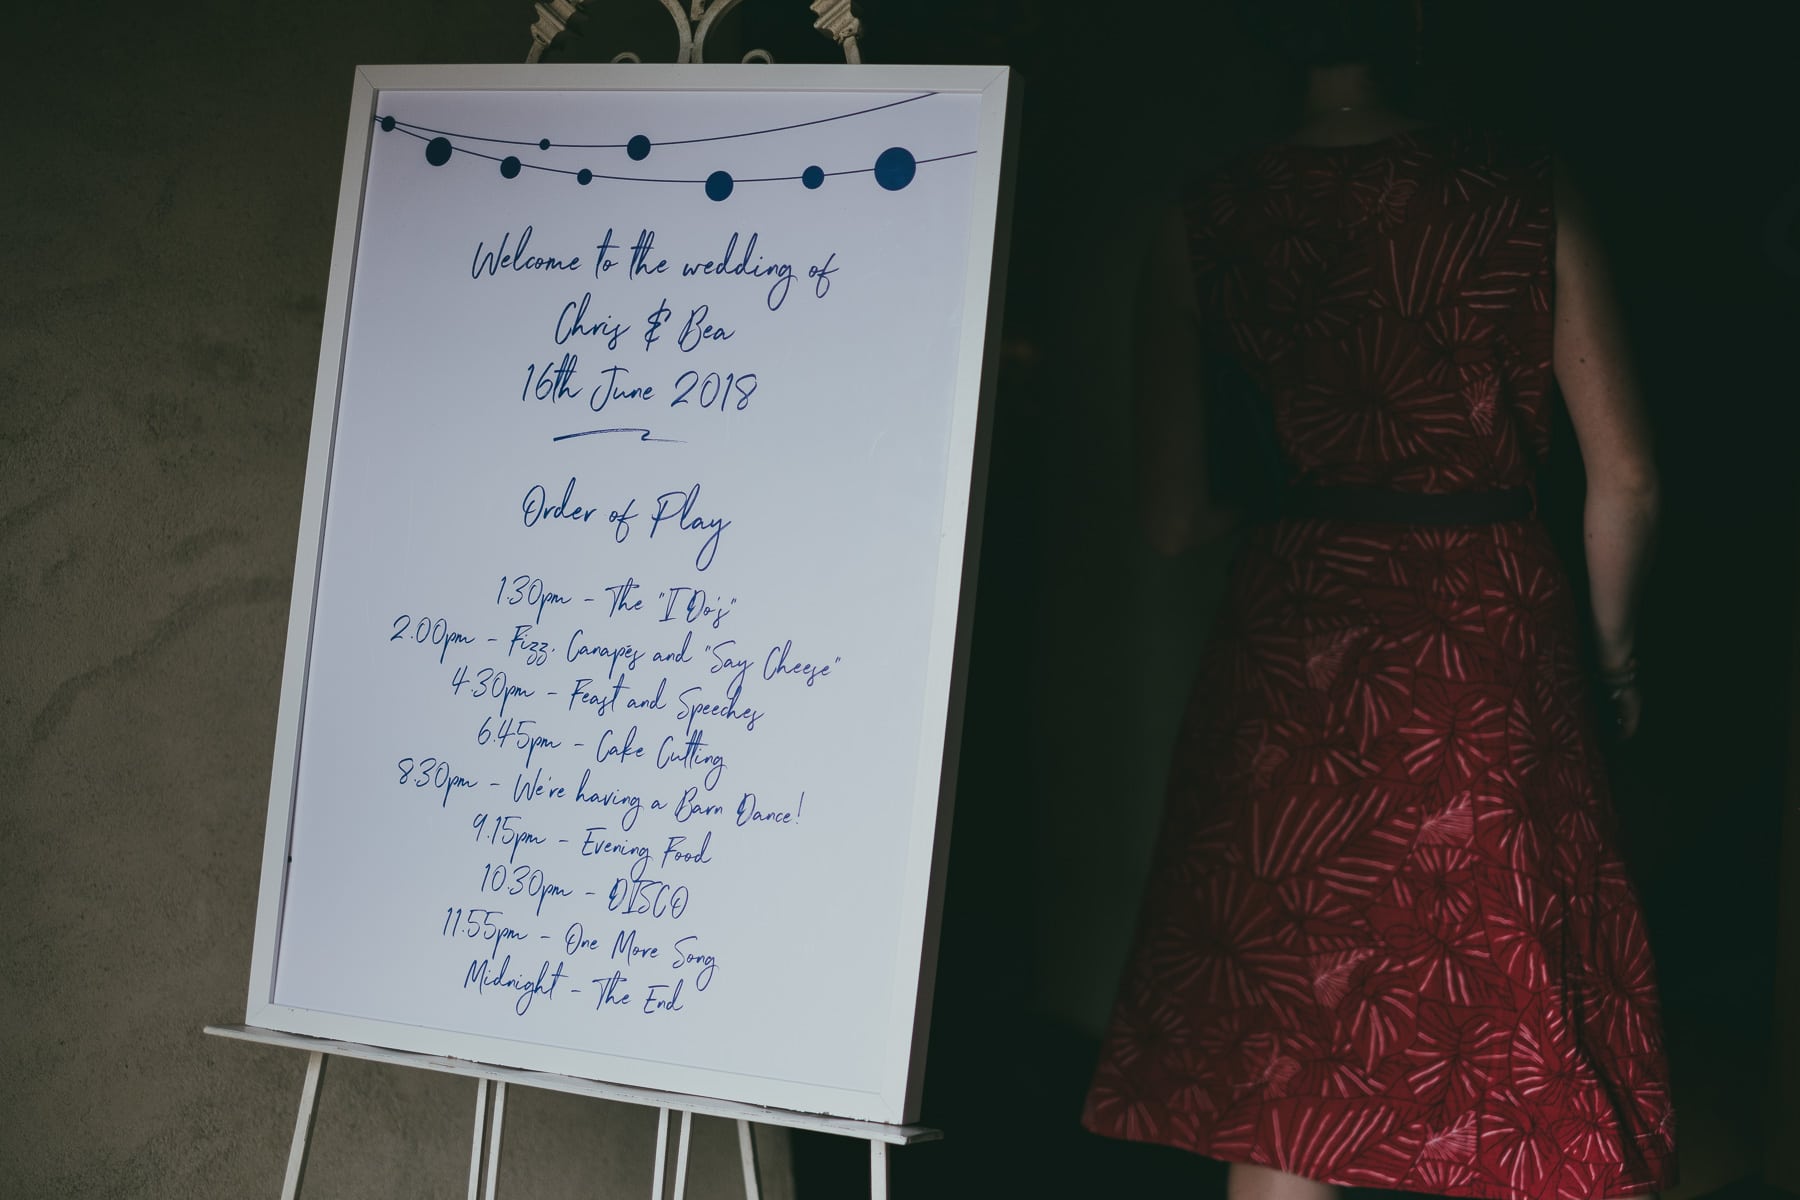 Welcome to the wedding of
Chris & Bea
16th June 2018
Order of Play
1.30pm - The "I Do's"
2.00pm - Fizz, Canapés and "Say Cheese"
4.30pm - Feast and Speeches
6.45pm - Cake Cutting
8.30pm - We're having a Barn Dance!
9.15pm - Evening Food
10.30pm - DISCO
11.55pm - One More Song
Midnight - The End